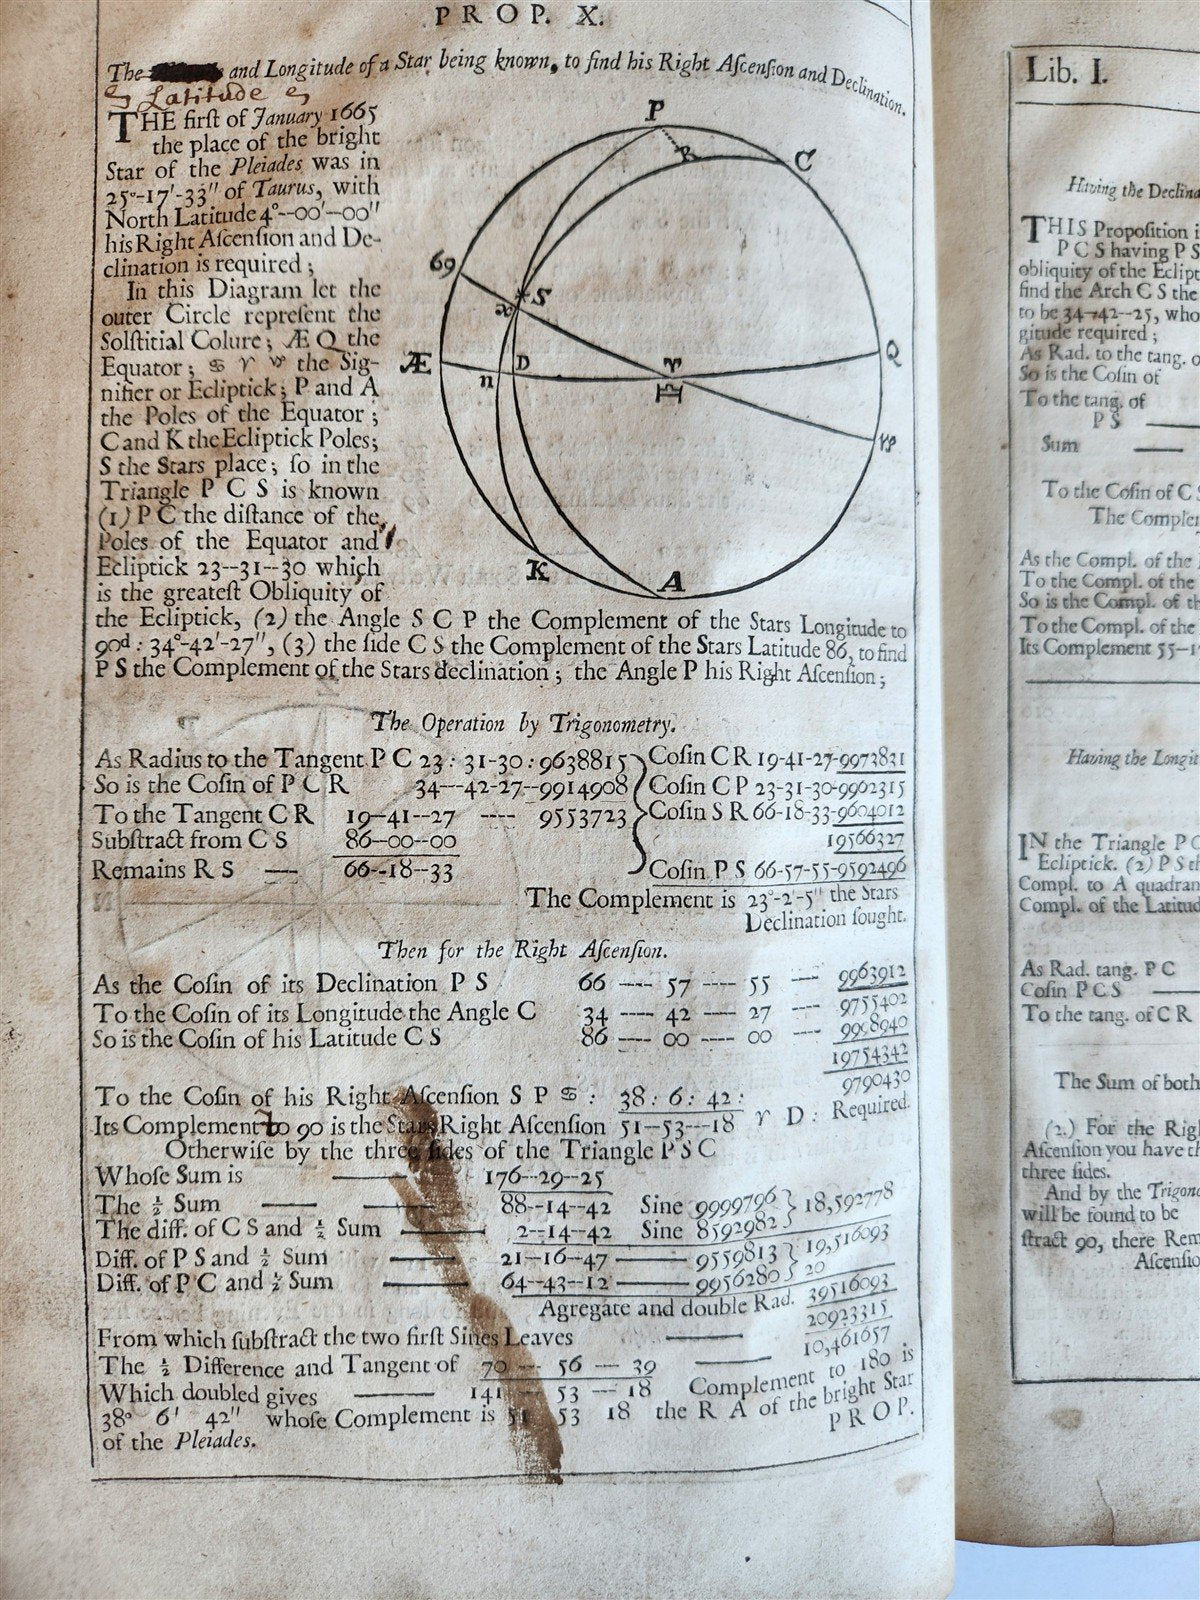 PROP. X.
The and Longitude of a Star being known, to find his Right Aſcenſion and Declination.
Latitude
THE firſt of January 1665
the place of the bright
Star of the Pleiades was in
25°-17'-33'' of Taurus, with
North Latitude 4°--00'--00''
his Right Aſcenſion and De-
clination is required;
In this Diagram let the
outer Circle repreſent the
Solſtitial Colure; ÆQ the
Equator; ♋ ♈ ♑ the Sig-
nifier or Ecliptick; P and A
the Poles of the Equator;
C and K the Ecliptick Poles;
S the Stars place; ſo in the
Triangle P C S is known
(1) P C the diſtance of the
Poles of the Equator and
Ecliptick 23--31--30 which
is the greateſt Obliquity of
the Ecliptick, (2) the Angle S C P the Complement of the Stars Longitude to
90d: 34°-42'-27'', (3) the ſide C S the Complement of the Stars Latitude 86, to find
P S the Complement of the Stars declination; the Angle P his Right Aſcenſion;
P
R
C
69
S
x
Æ
n
D
♈
♎
Q
♑
K
A
The Operation by Trigonometry.
As Radius to the Tangent P C 23: 31-30: 9638815
So is the Coſin of P C R 34---42-27--9914908
To the Tangent C R 19--41--27 ---- 9553723
Subſtract from C S 86--00--00
Remains R S — 66--18--33
Coſin C R 19-41-27-9973831
Coſin C P 23-31-30-9962315
Coſin S R 66-18-33-9604012
19566327
Coſin P S 66-57-55-9592496
The Complement is 23°-2'-5'' the Stars
Declination ſought.
Then for the Right Aſcenſion.
As the Coſin of its Declination P S 66 ---- 57 ---- 55 --- 9963912
To the Coſin of its Longitude the Angle C 34 ---- 42 ---- 27 --- 9755402
So is the Coſin of his Latitude C S 86 ---- 00 ---- 00 --- 9998940
19754342
9790430
To the Coſin of his Right Aſcenſion S P ♋: 38: 6: 42:
Its Complement to 90 is the Stars Right Aſcenſion 51--53---18 ♈ D: Required.
Otherwiſe by the three ſides of the Triangle P S C
Whoſe Sum is — 176--29--25
The ½ Sum — — 88--14--42 Sine 9999796 } 18,592778
The diff. of C S and ½ Sum — 2--14--42 Sine 8592982
Diff. of P S and ½ Sum — 21--16--47 — 9559813 } 19,516093
Diff. of P C and ½ Sum — 64--43--12 — 9956280 } 20
Agregate and double Rad. 39516093
From which ſubſtract the two firſt Sines Leaves — 20923315
The ½ Difference and Tangent of 70 -- 56 -- 39 — 10,461657
Which doubled gives — 141 -- 53 -- 18 Complement to 180 is
38° 6' 42'' whoſe Complement is 51 53 18 the R A of the bright Star
of the Pleiades.
PROP.
Lib. I.
Having the
THIS Propoſition
P C S having P S
obliquity of the
find the Arch C S the
to be 34-42--25,
gitude required;
As Rad. to the tang.
So is the Coſin of
To the tang. of
P S —
Sum —
To the Coſin of
The
As the Compl. of the
To the Compl. of the
So is the Compl. of
To the Compl. of the
Its Complement
Having the
IN the Triangle
Ecliptick. (2) P S
Compl. to A
Compl. of the
As Rad. tang. P C
Coſin P C S —
To the tang. of C R
The Sum of both
(2.) For the
Aſcenſion you have
three ſides.
And by the
will be found to be
ſtract 90, there